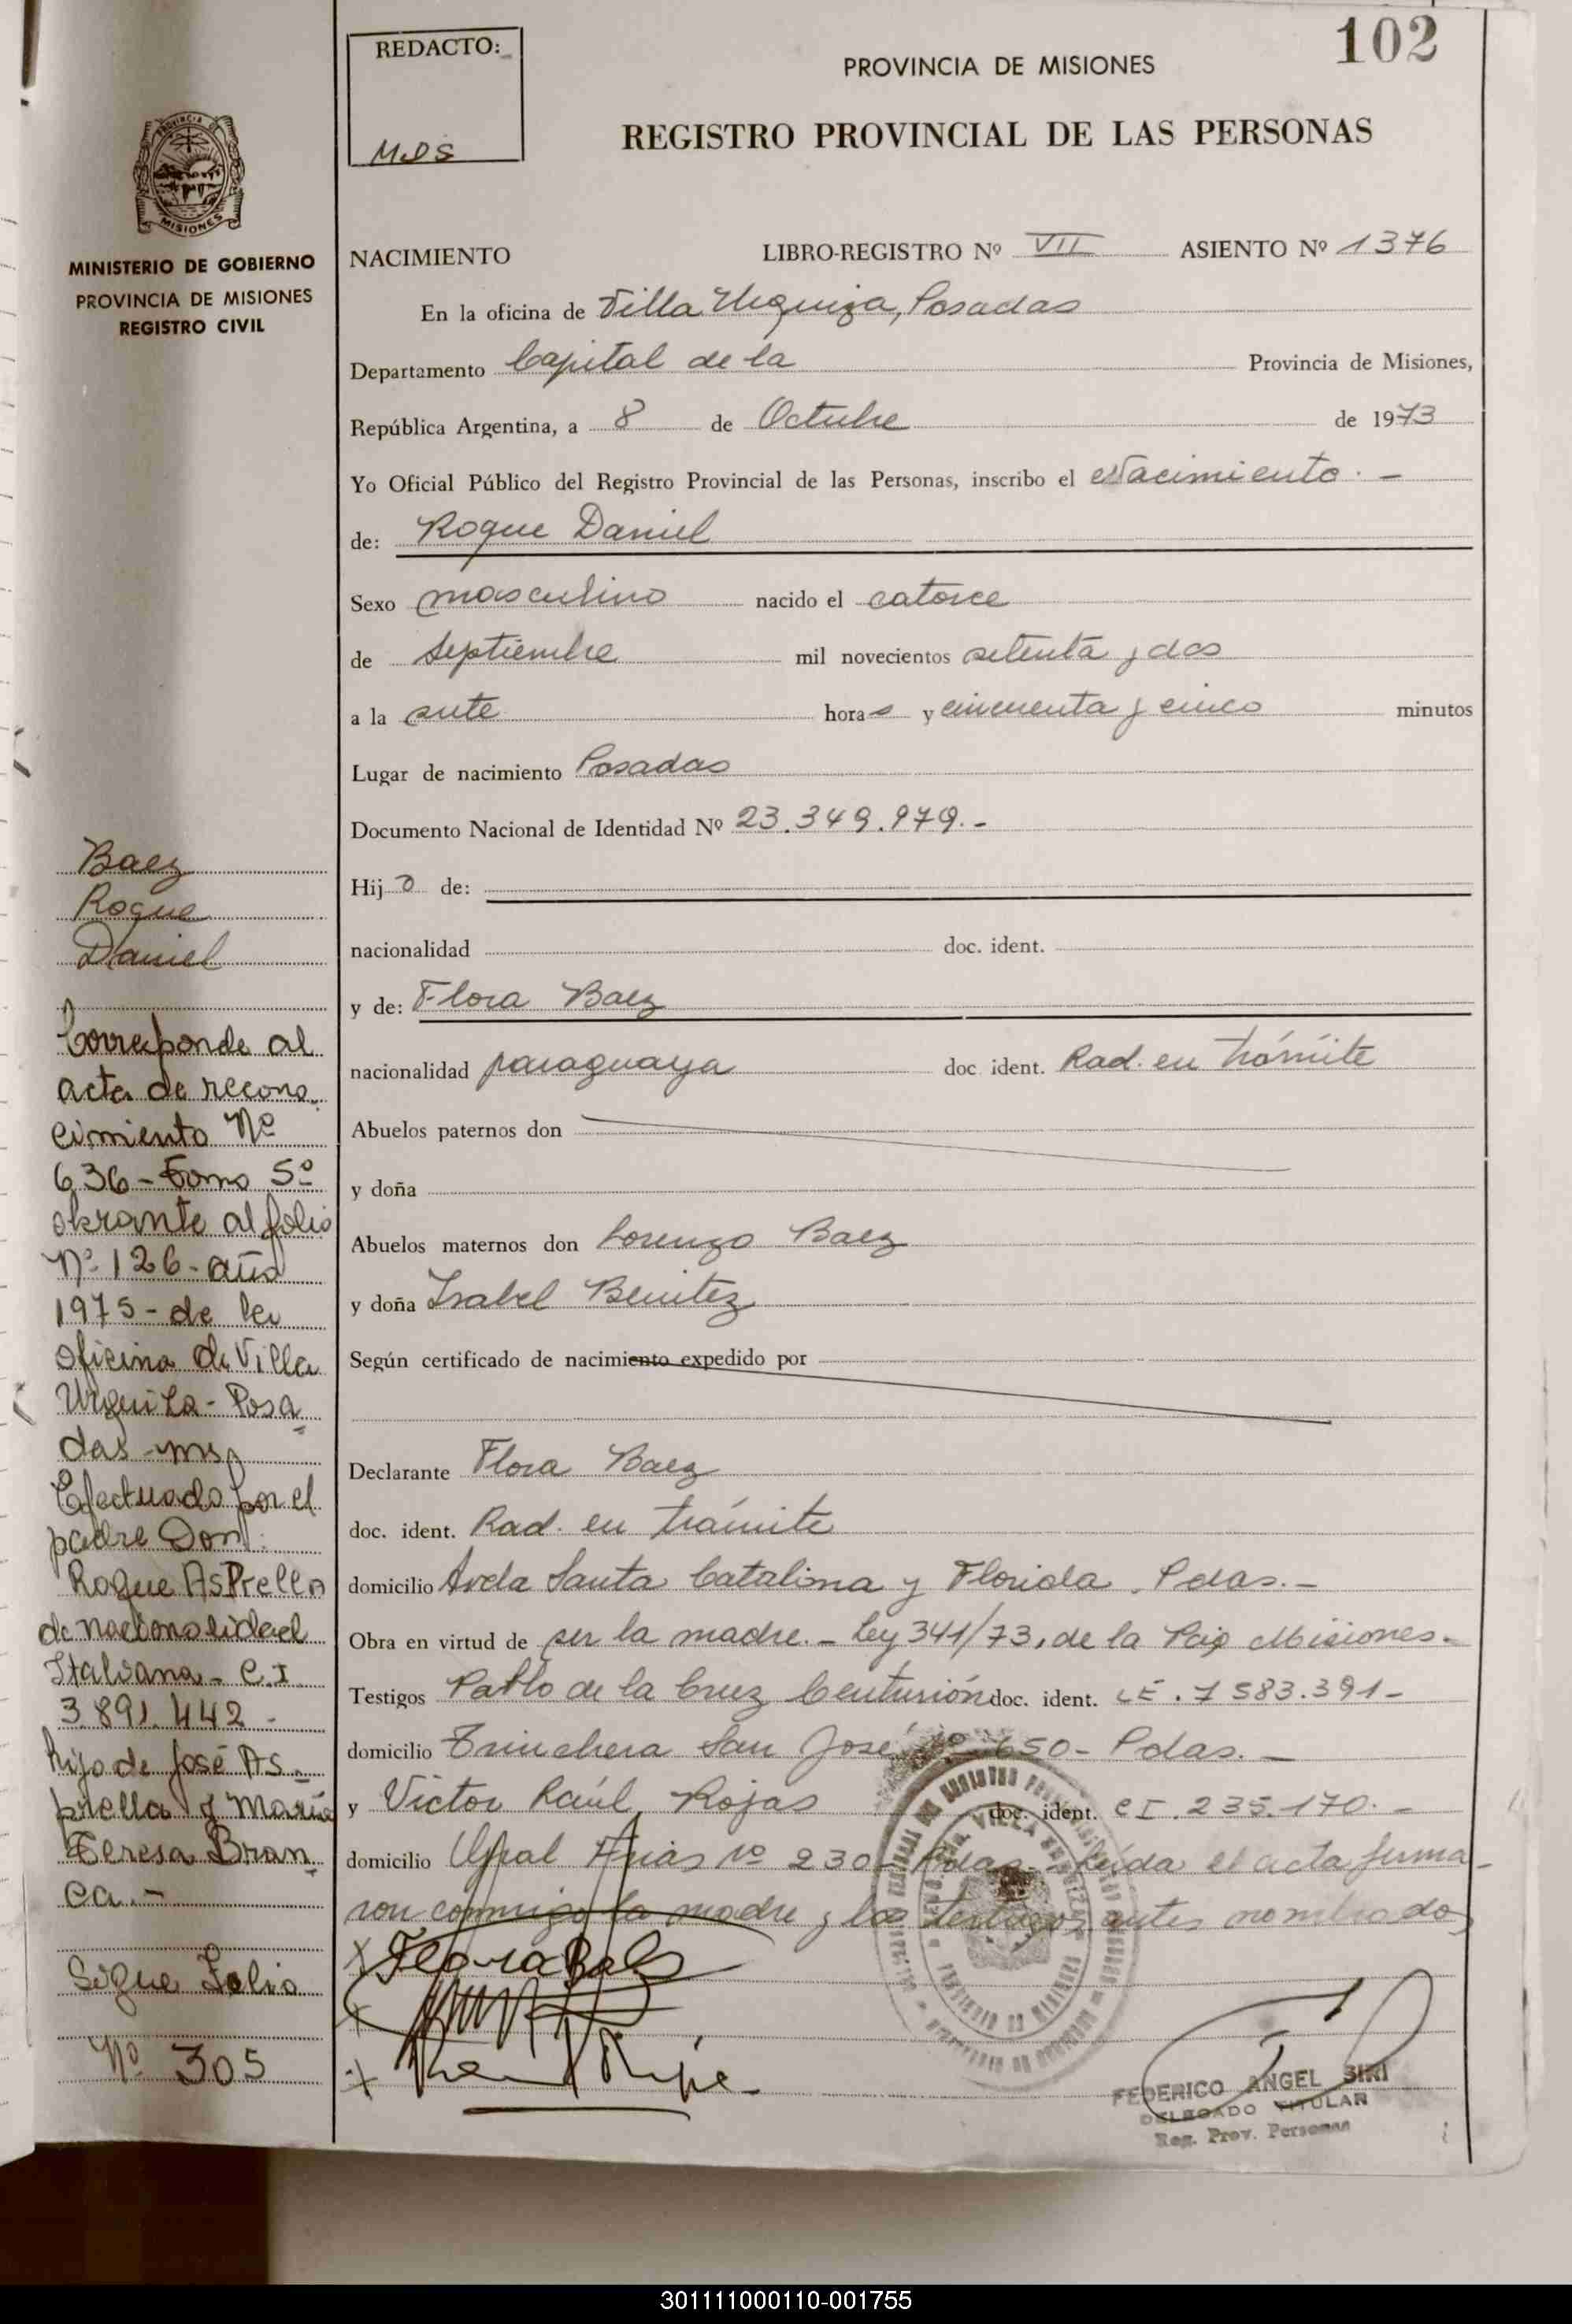 102
REDACTO:
MDS
PROVINCIA DE MISIONES
REGISTRO PROVINCIAL DE LAS PERSONAS
PROVINCIA DE
MISIONES
MINISTERIO DE GOBIERNO
PROVINCIA DE MISIONES
REGISTRO CIVIL
NACIMIENTO LIBRO-REGISTRO Nº VII ASIENTO Nº 1376
En la oficina de Villa Urquiza, Posadas
Departamento Capital de la Provincia de Misiones,
República Argentina, a 8 de Octubre de 1973
Yo Oficial Público del Registro Provincial de las Personas, inscribo el Nacimiento. -
de: Roque Daniel
Sexo masculino nacido el catorce
de septiembre mil novecientos setenta y dos
a la siete horas y cincuenta y cinco minutos
Lugar de nacimiento Posadas
Documento Nacional de Identidad Nº 23.349.979.-
Hijo de:
nacionalidad doc. ident.
y de: Flora Baez
nacionalidad paraguaya doc ident. Rad. en trámite
Abuelos paternos don
y doña
Abuelos maternos don Lorenzo Baez
y doña Isabel Benitez
Según certificado de nacimiento expedido por
Declarante Flora Baez
doc. ident. Rad. en trámite
domicilio Avda Santa Catalina y Florida. Pdas.-
Obra en virtud de ser la madre.- Ley 341/73, de la Pcia Misiones.-
Testigos Pablo de la Cruz Centurión doc. ident. LE. 7583.391-
domicilio Trinchera San José Nº 650- Pdas. -
y Victor Raúl Rojas doc. ident. CI. 235.170. -
domicilio Ugral Arias Nº 230- Pdas.- Leída el acta firma-
ron conmigo la madre y los testigos antes nombrados
x Flora Baez
x
x
FEDERICO ANGEL SIRI
DELEGADO TITULAR
Reg. Prov. Personas
Baez
Roque
Daniel
Corresponde al
acta de recono-
cimiento Nº
636 - Tomo 5º
obrante al folio
Nº 126 - año
1975 - de la
oficina de Villa
Urquiza - Posa-
das - mns
Efectuado por el
padre Don
Roque Asprella
de nacionalidad
Italiana - C.I.
3.891.442 -
hijo de José As-
prella y María
Teresa Bran-
ca.-
Sigue Folio
Nº 305
301111000110-001755